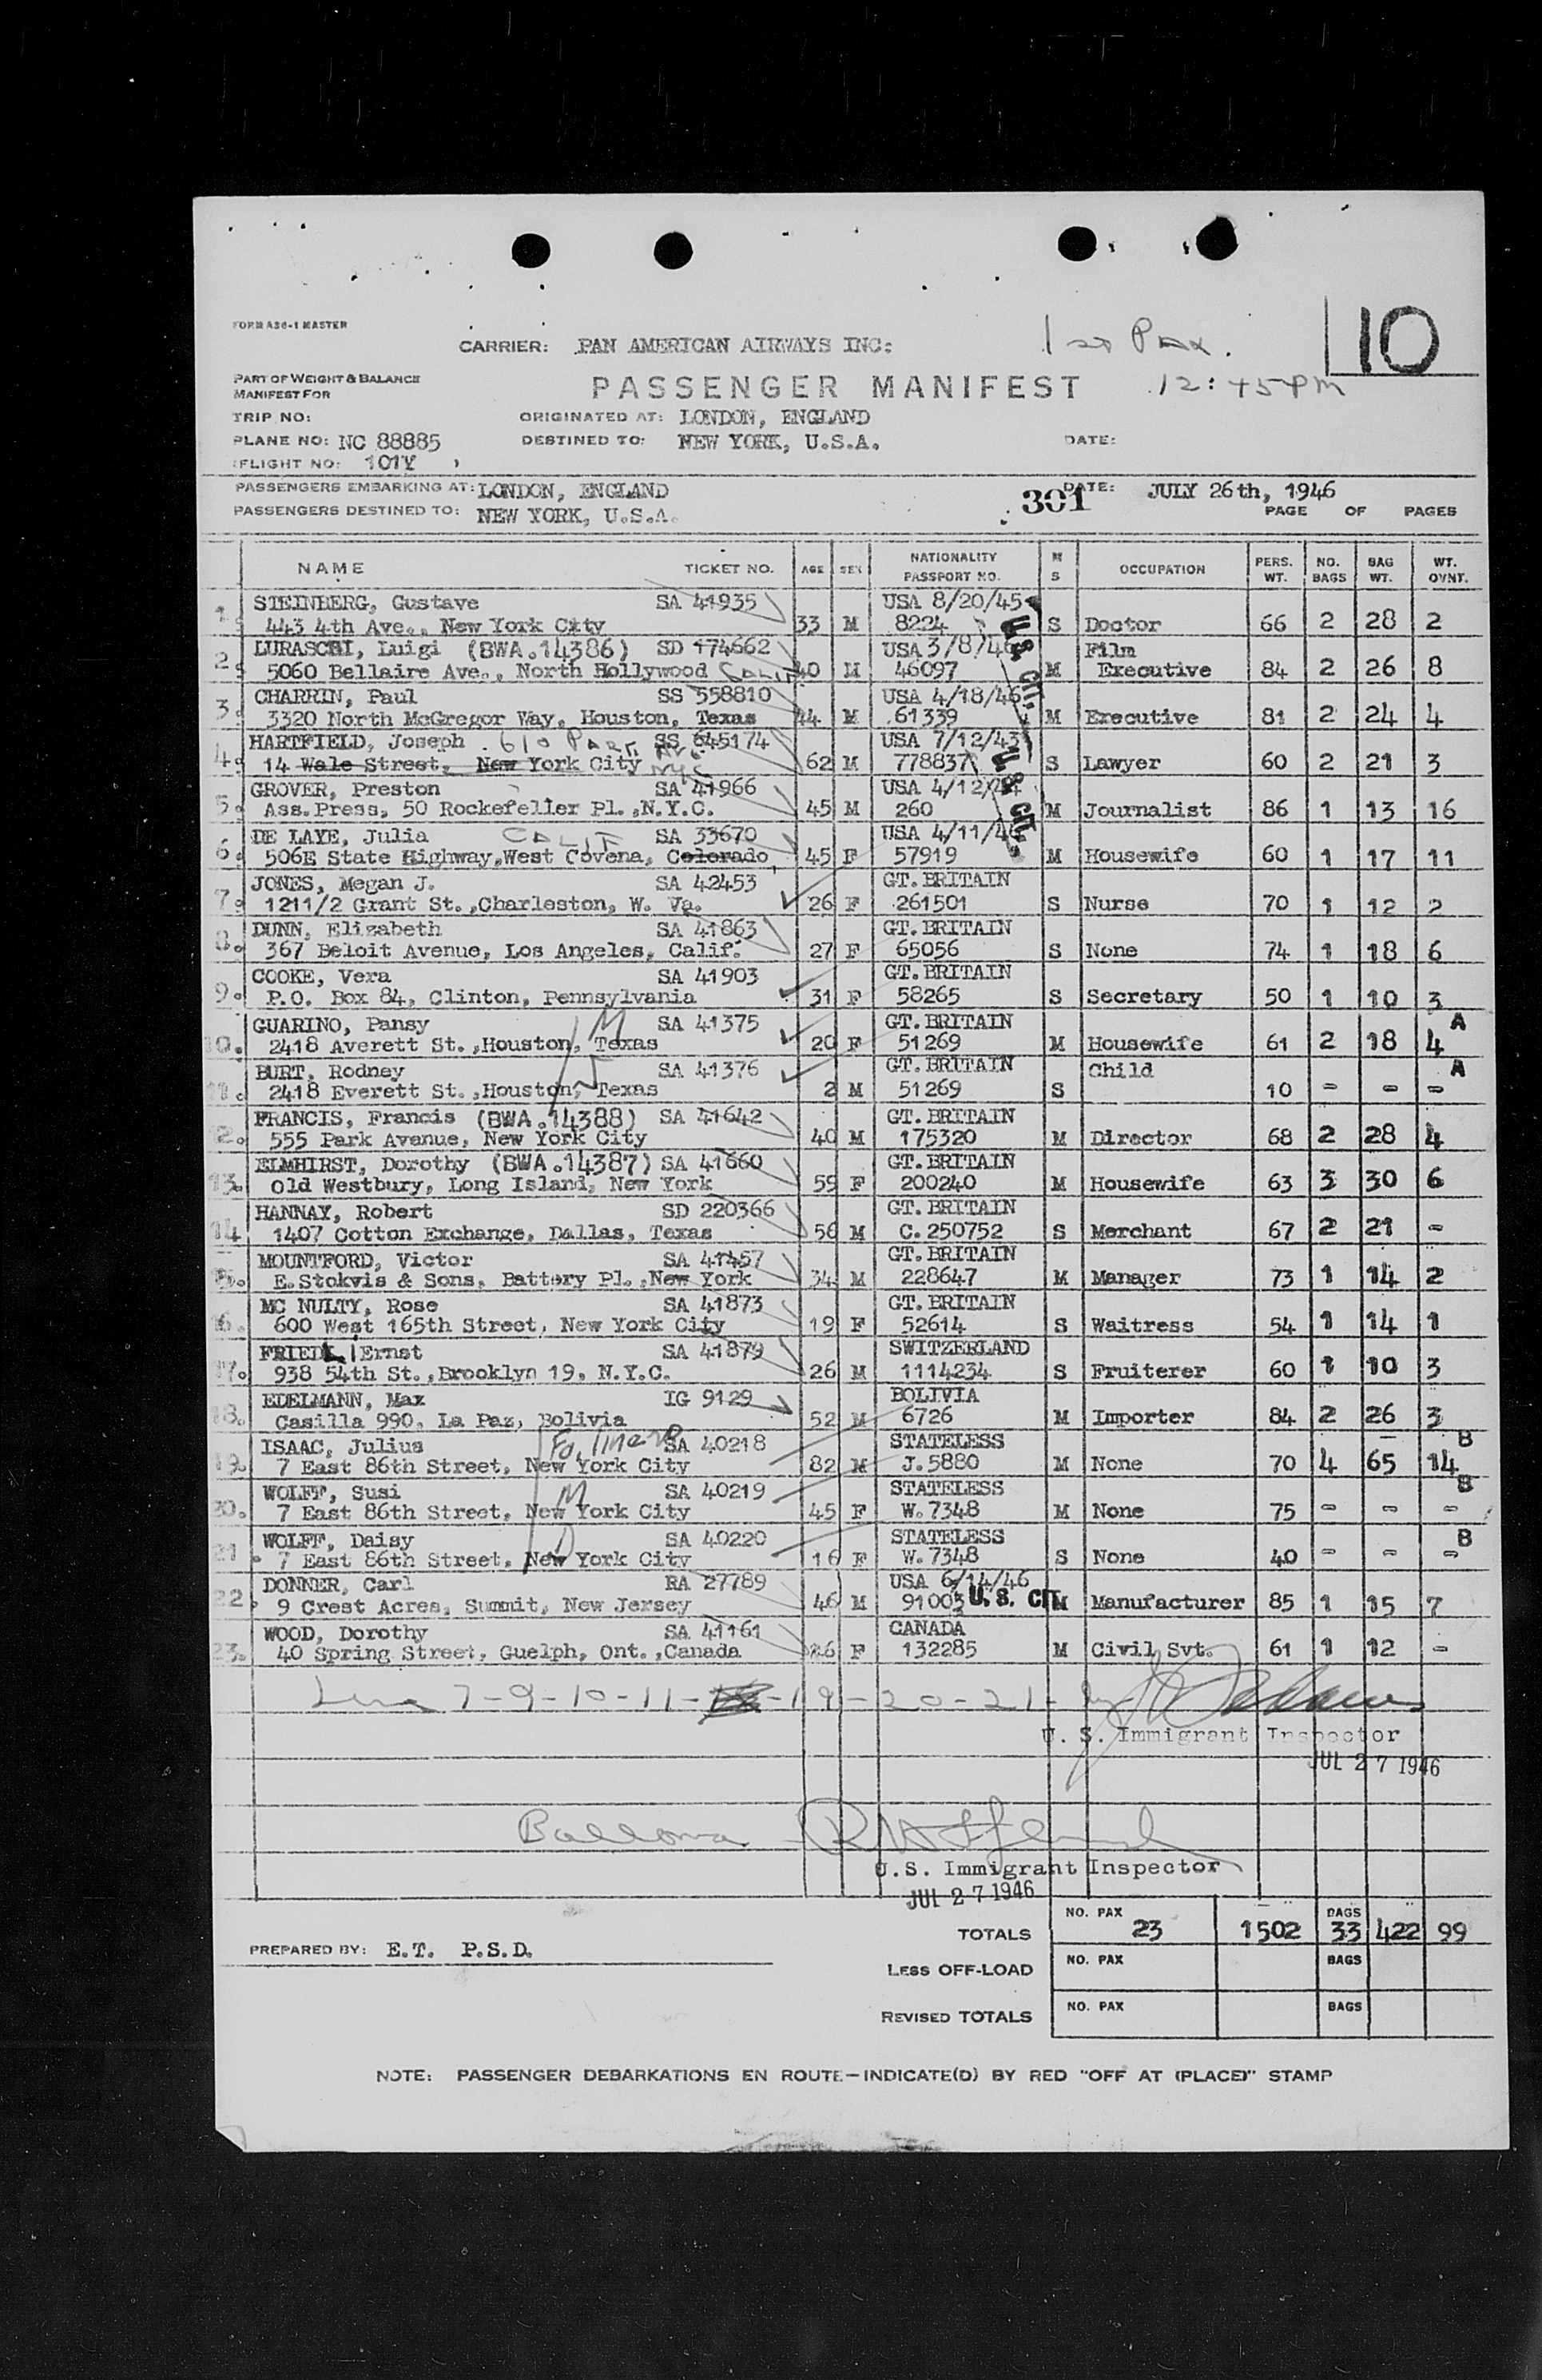 FORM A36-1 MASTER
CARRIER: PAN AMERICAN AIRWAYS INC:
1st Pax.
10
PART OF WEIGHT & BALANCE
MANIFEST FOR
PASSENGER MANIFEST
12:45 PM
TRIP NO:
ORIGINATED AT: LONDON, ENGLAND
PLANE NO: NC 88885
DESTINED TO: NEW YORK, U.S.A.
DATE:
(FLIGHT NO: 101Y )
PASSENGERS EMBARKING AT: LONDON, ENGLAND
301
DATE: JULY 26th, 1946
PASSENGERS DESTINED TO: NEW YORK, U.S.A.
PAGE OF PAGES
NAME TICKET NO. AGE SEX NATIONALITY PASSPORT NO. M S OCCUPATION PERS. WT. NO. BAGS BAG WT. WT. OVNT.
1. STEINBERG, Gustave SA 41935 USA 8/20/45
443 4th Ave., New York City 33 M 8224 S Doctor 66 2 28 2
U.S. CIT.
2. LURASCHI, Luigi (BWA.14386) SD 174662 USA 3/8/46 Film
5060 Bellaire Ave., North Hollywood CALIF 40 M 46097 M Executive 84 2 26 8
3. CHARRIN, Paul SS 558810 USA 4/18/46
3320 North McGregor Way, Houston, Texas 44 M 61339 M Executive 81 2 24 4
4. HARTFIELD, Joseph 610 PARK AVE SS 645174 USA 7/12/43
14 Wale Street, New York City NYC 62 M 778837 S Lawyer 60 2 21 3
U.S. CIT.
5. GROVER, Preston SA 41966 USA 4/12/44
Ass.Press, 50 Rockefeller Pl.,N.Y.C. 45 M 260 M Journalist 86 1 13 16
6. DE LAYE, Julia CALIF SA 33670 USA 4/11/46
506E State Highway,West Covena, Colorado, 45 F 57919 M Housewife 60 1 17 11
7. JONES, Megan J. SA 42453 GT. BRITAIN
1211/2 Grant St.,Charleston, W. Va. 26 F 261501 S Nurse 70 1 12 2
8. DUNN, Elizabeth SA 41863 GT. BRITAIN
367 Beloit Avenue, Los Angeles, Calif. 27 F 65056 S None 74 1 18 6
9. COOKE, Vera SA 41903 GT. BRITAIN
P.O. Box 84, Clinton, Pennsylvania 31 F 58265 S Secretary 50 1 10 3
10. GUARINO, Pansy M SA 41375 GT. BRITAIN A
2418 Averett St.,Houston, Texas 20 F 51269 M Housewife 61 2 18 4
11. BURT, Rodney S SA 41376 GT. BRITAIN Child A
2418 Everett St.,Houston, Texas 2 M 51269 S 10 - - -
12. FRANCIS, Francis (BWA.14388) SA 41642 GT. BRITAIN
555 Park Avenue, New York City 40 M 175320 M Director 68 2 28 4
13. ELMHIRST, Dorothy (BWA.14387) SA 41660 GT. BRITAIN
Old Westbury, Long Island, New York 55 F 200240 M Housewife 63 3 30 6
14 HANNAY, Robert SD 220366 GT. BRITAIN
1407 Cotton Exchange, Dallas, Texas 56 M C.250752 S Merchant 67 2 21 -
15. MOUNTFORD, Victor SA 41457 GT. BRITAIN
E.Stokvis & Sons, Battery Pl.,New York 34 M 228647 M Manager 73 1 14 2
16. MC NULTY, Rose SA 41873 GT. BRITAIN
600 West 165th Street, New York City 19 F 52614 S Waitress 54 1 14 1
17. FRIEDL, Ernst SA 41879 SWITZERLAND
938 54th St.,Brooklyn 19, N.Y.C. 26 M 1114234 S Fruiterer 60 1 10 3
18. EDELMANN, Max IG 9129 BOLIVIA
Casilla 990, La Paz, Bolivia 52 M 6726 M Importer 84 2 26 3
19. ISAAC, Julius SA 40218 STATELESS B
7 East 86th Street, New York City 82 M J.5880 M None 70 4 65 14
20. WOLFF, Susi M SA 40219 STATELESS B
7 East 86th Street, New York City 45 F W.7348 M None 75 - - -
21. WOLFF, Daisy D SA 40220 STATELESS B
7 East 86th Street, New York City 16 F W.7348 S None 40 - - -
22. DONNER, Carl RA 27789 USA 6/14/46
9 Crest Acres, Summit, New Jersey 46 M 91003 U.S. CIT. M Manufacturer 85 1 15 7
23. WOOD, Dorothy SA 41161 CANADA
40 Spring Street, Guelph, Ont.,Canada 26 F 132285 M Civil Svt. 61 1 12 -
7-9-10-11-19-20-21- by
U. S. Immigrant Inspector
JUL 27 1946
Balance
U.S. Immigrant Inspector
JUL 27 1946
TOTALS NO. PAX 23 1502 BAGS 33 422 99
PREPARED BY: E.T. P.S.D.
LESS OFF-LOAD NO. PAX BAGS
REVISED TOTALS NO. PAX BAGS
NOTE: PASSENGER DEBARKATIONS EN ROUTE—INDICATE(D) BY RED "OFF AT (PLACE)" STAMP